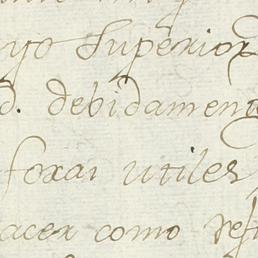 yo Superior
d. debidament
foxai utiles
acer como resi